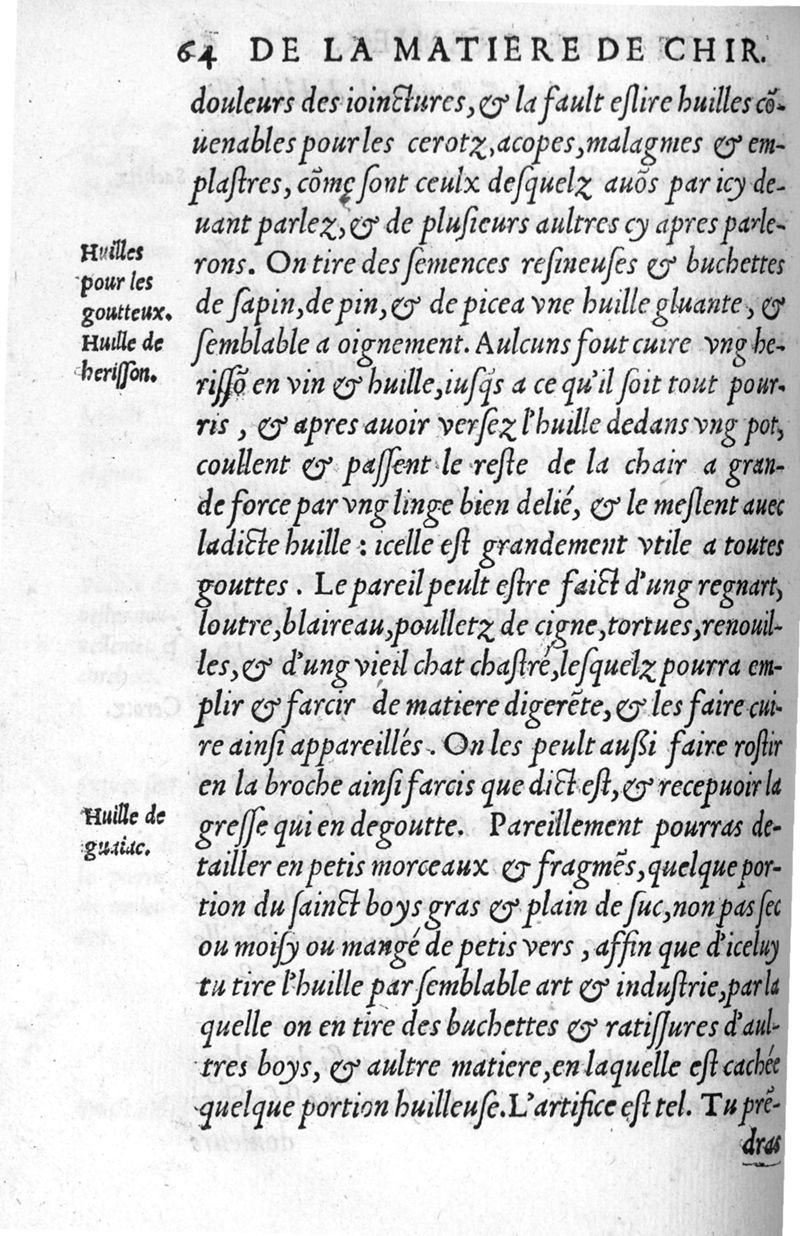 64 DE LA MATIERE DE CHIR.
douleurs des ioinctures, & la fault eſlire huilles cõ-
uenables pour les cerotz, acopes, malagmes & em-
plaſtres, cõme ſont ceulx deſquelz auõs par icy de-
uant parlez, & de pluſieurs aultres cy apres parle-
rons. On tire des ſemences reſineuſes & buchettes
de ſapin, de pin, & de picea vne huille gluante, &
ſemblable a oignement. Aulcuns fout cuire vng he-
riſſõ en vin & huille, iuſq̃s a ce qu'il ſoit tout pour-
ris, & apres auoir verſez l'huille dedans vng pot,
coullent & paſſent le reſte de la chair a gran-
de force par vng linge bien delié, & le meſlent auec
ladicte huille : icelle eſt grandement vtile a toutes
gouttes. Le pareil peult eſtre faict d'ung regnart,
loutre, blaireau, poulletz de cigne, tortues, renouil-
les, & d'ung vieil chat chaſtré, leſquelz pourra em-
plir & farcir de matiere digerẽte, & les faire cui-
re ainſi appareillés. On les peult auſſi faire roſtir
en la broche ainſi farcis que dict eſt, & recepuoir la
greſſe qui en degoutte. Pareillement pourras de-
tailler en petis morceaux & fragmẽs, quelque por-
tion du ſainct boys gras & plain de ſuc, non pas ſec
ou moiſy ou mangé de petis vers, affin que d'iceluy
tu tire l'huille par ſemblable art & induſtrie, par la
quelle on en tire des buchettes & ratiſſures d'aul-
tres boys, & aultre matiere, en laquelle eſt cachée
quelque portion huilleuſe. L'artifice eſt tel. Tu prẽ-
dras
Huilles
pour les
goutteux.
Huille de
heriſſon.
Huille de
guaiac.